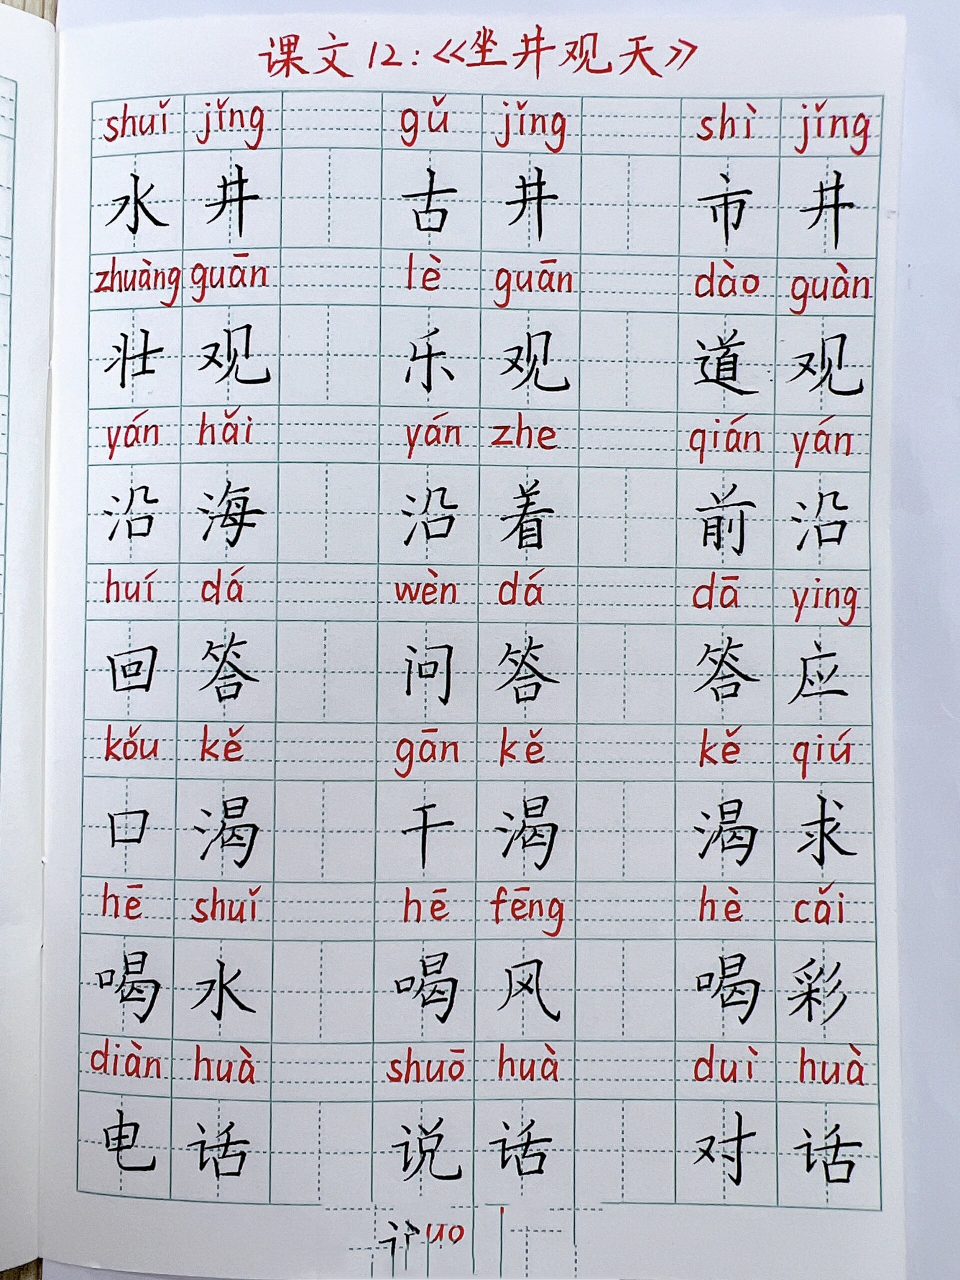 课文12:《坐井观天》
shuǐ jǐng gǔ jǐng shì jǐng
水井 古井 市井
zhuàng guān lè guān dào guàn
壮观 乐观 道观
yán hǎi yán zhe qián yán
沿海 沿着 前沿
huí dá wèn dá dā ying
回答 问答 答应
kǒu kě gān kě kě qiú
口渴 干渴 渴求
hē shuǐ hē fēng hè cǎi
喝水 喝风 喝彩
diàn huà shuō huà duì huà
电话 说话 对话